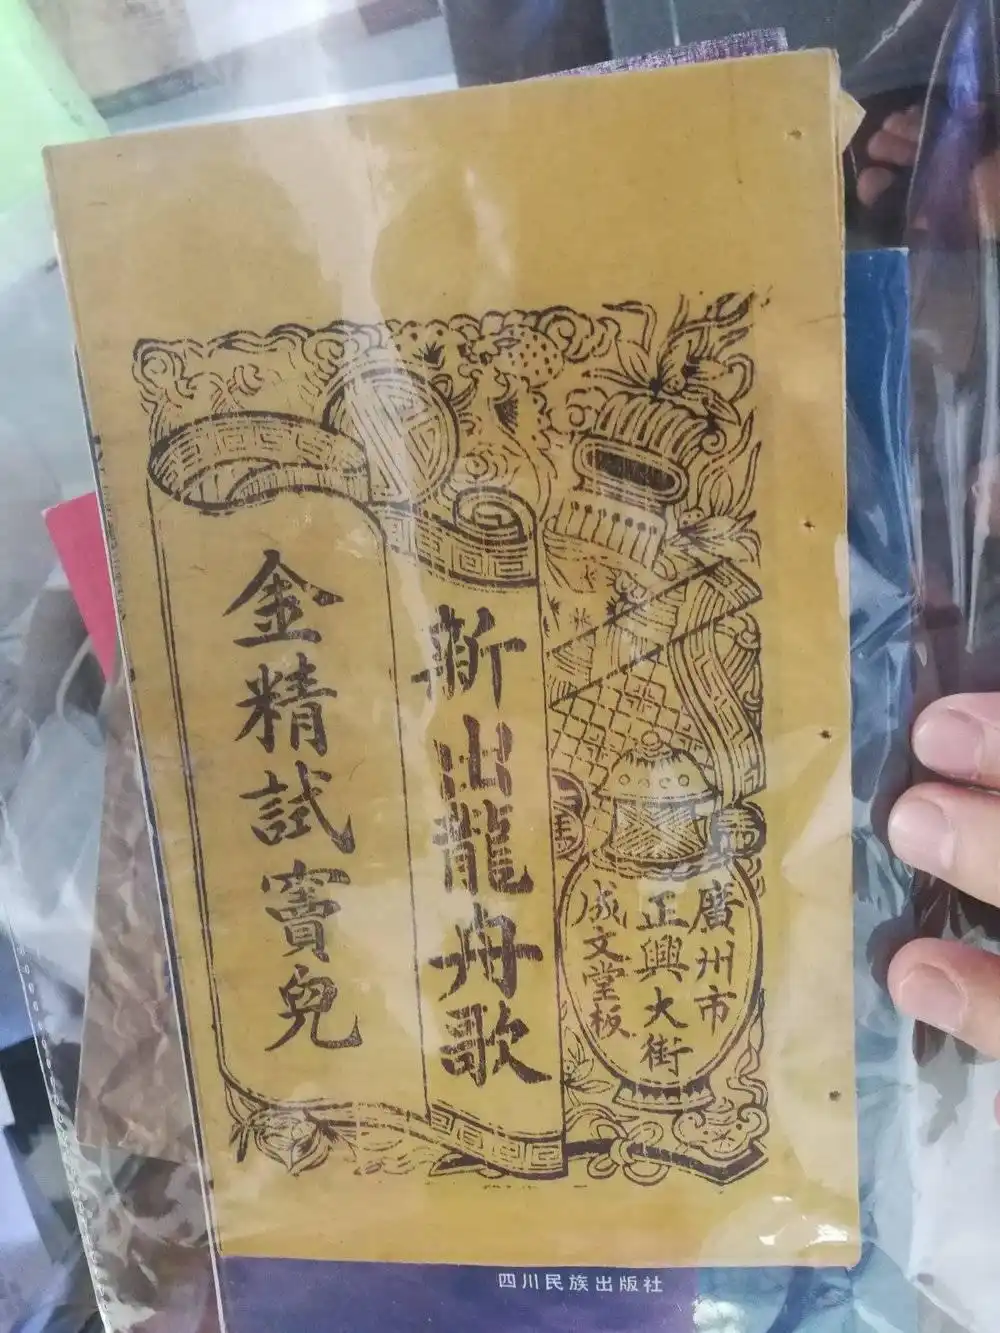 廣州市
正興大街
成文堂板
新出龍舟歌
金精試竇兒
四川民族出版社